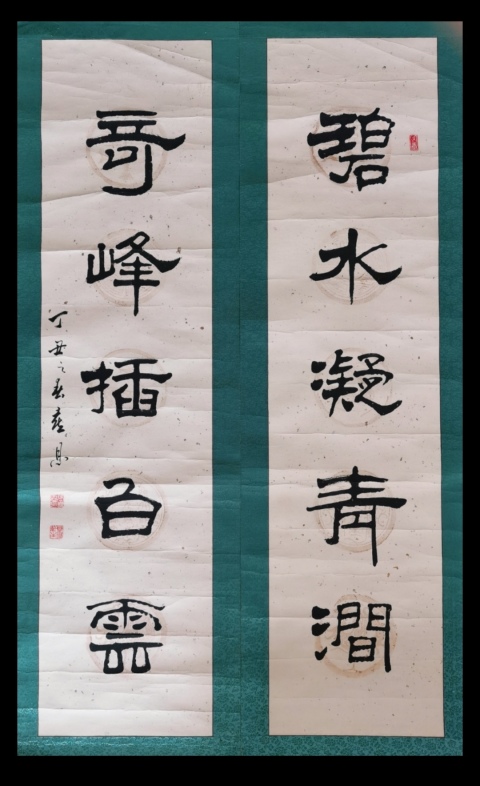 碧水凝青澗
奇峰插白雲
丁丑之春